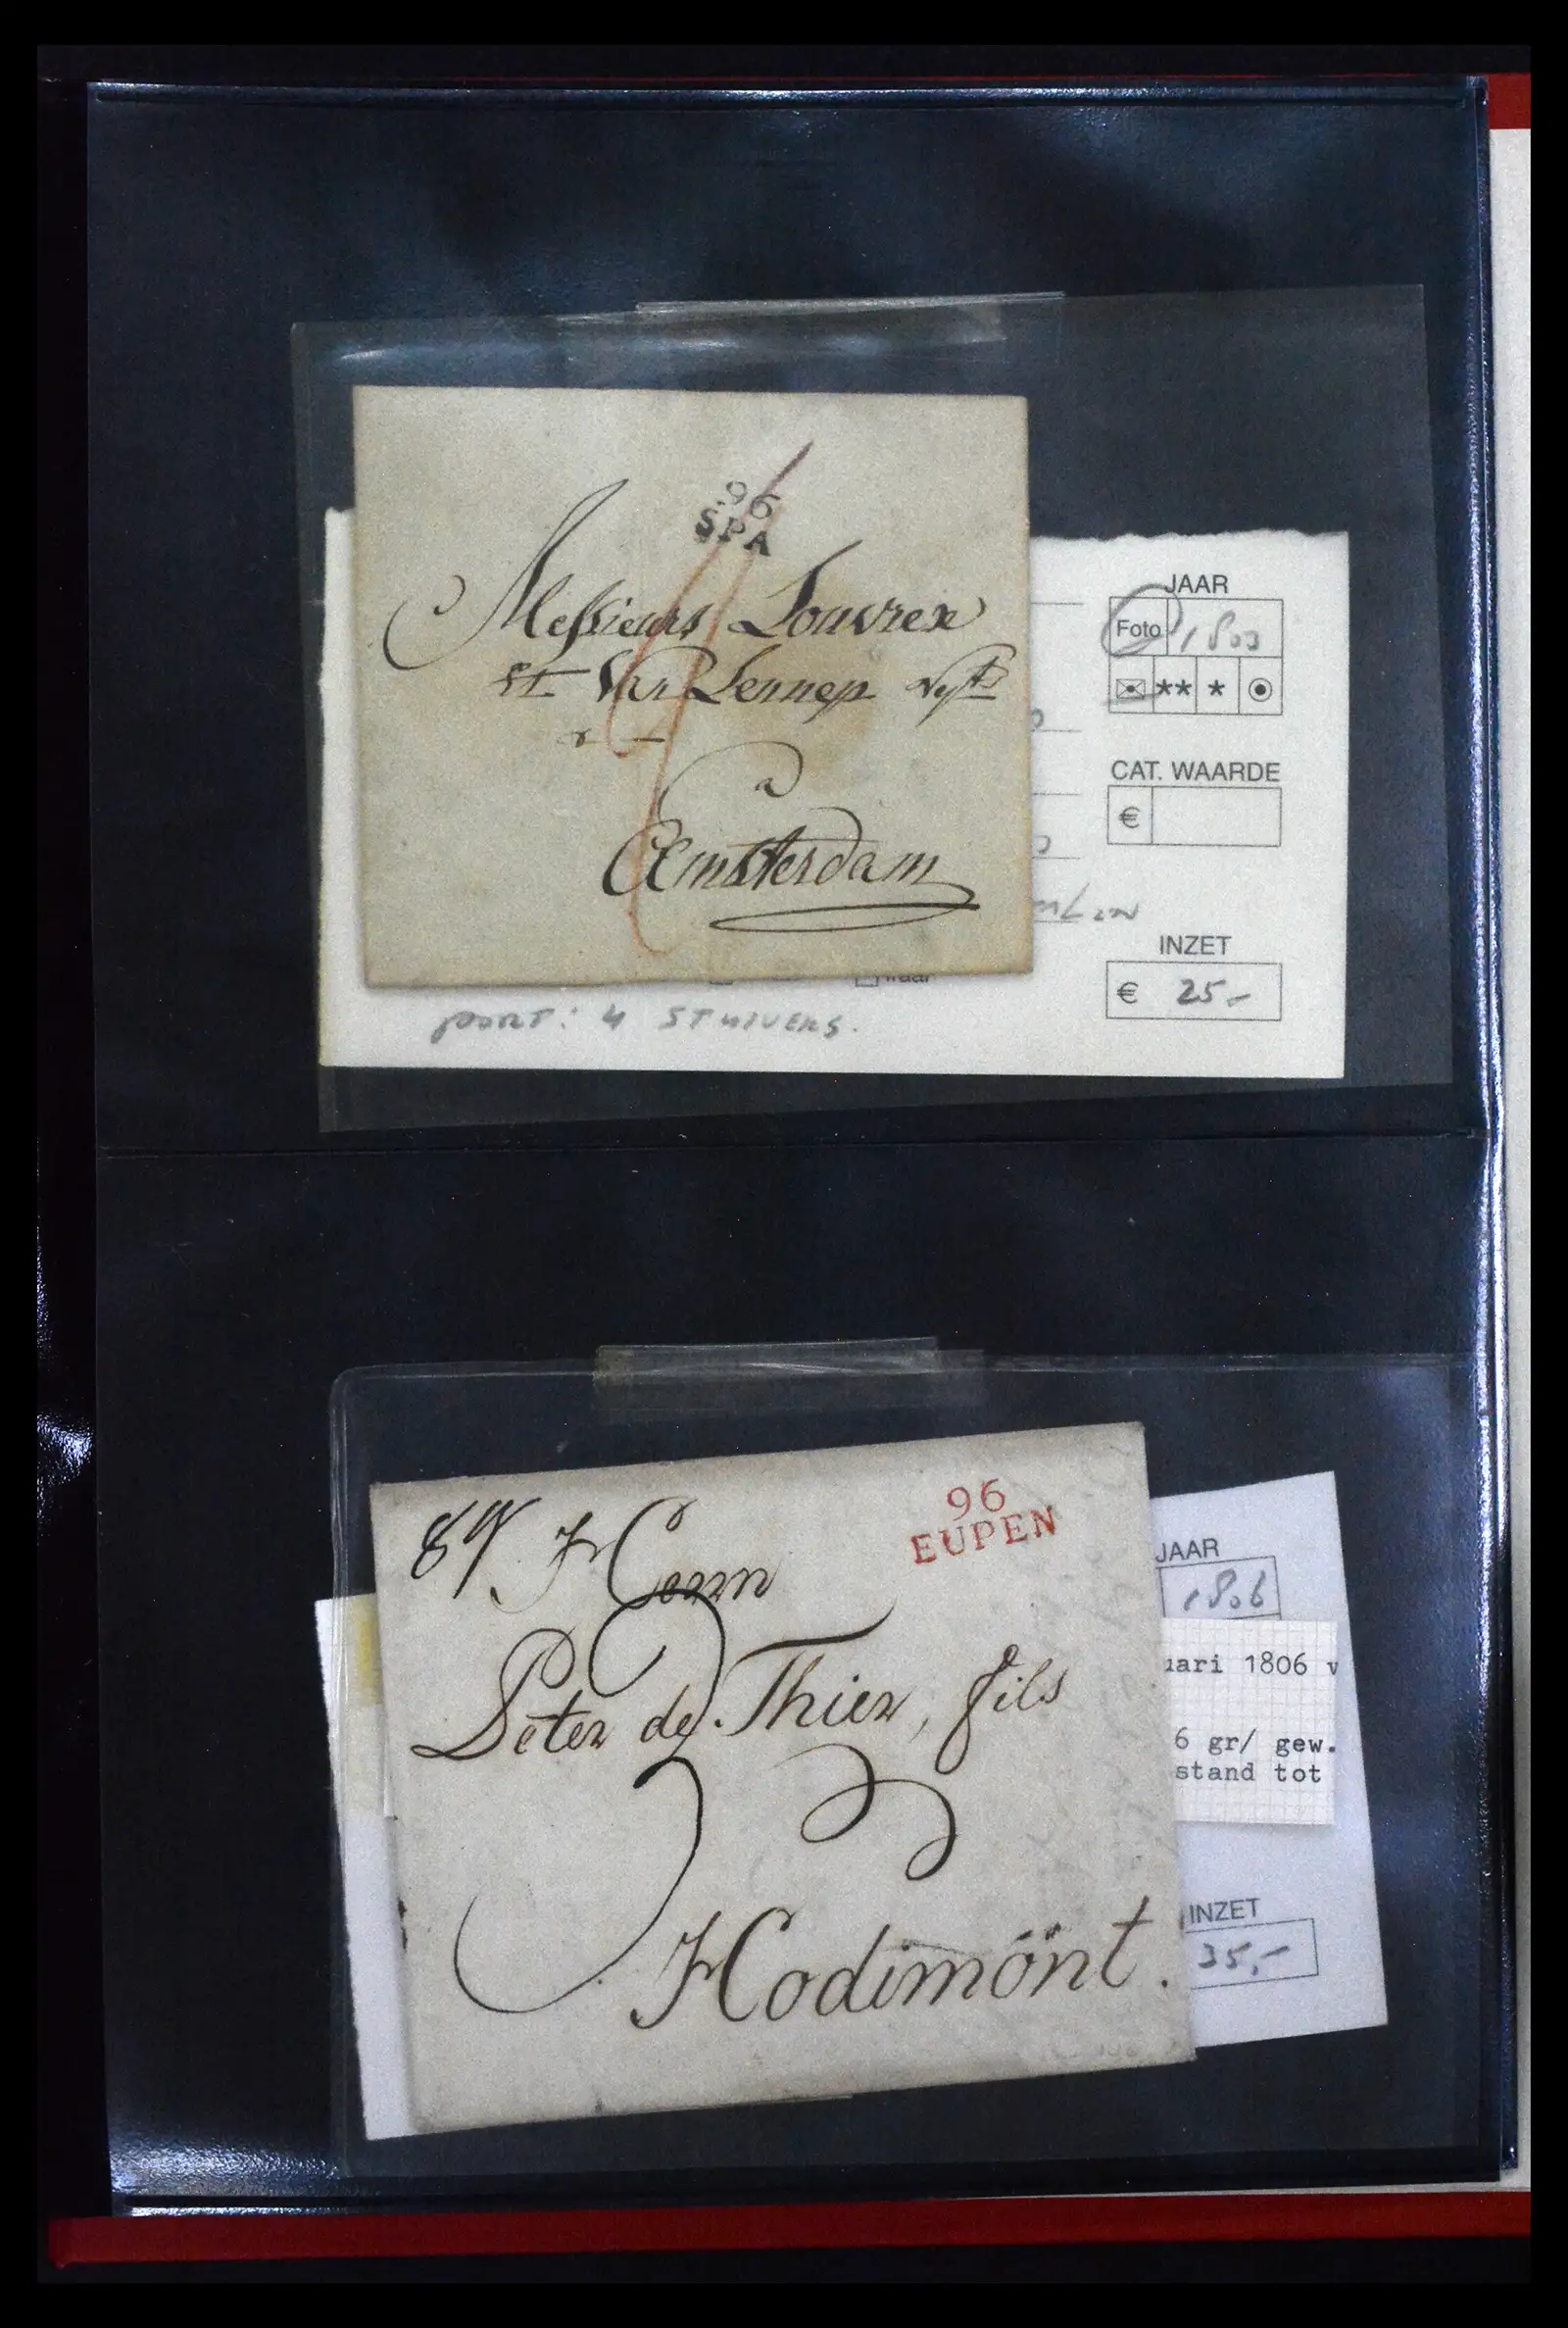 96
SPA
Messieurs Louvrex
et Van Lennep
a
Amsterdam
JAAR
Foto 1803
** *
CAT. WAARDE
€
INZET
€ 25,-
PORT: 4 STUIVERS.
96
EUPEN
Herrn
Peter de Thier, fils
Hodimont.
JAAR
1806
uari 1806 v
6 gr/ gew.
stand tot
INZET
35,-